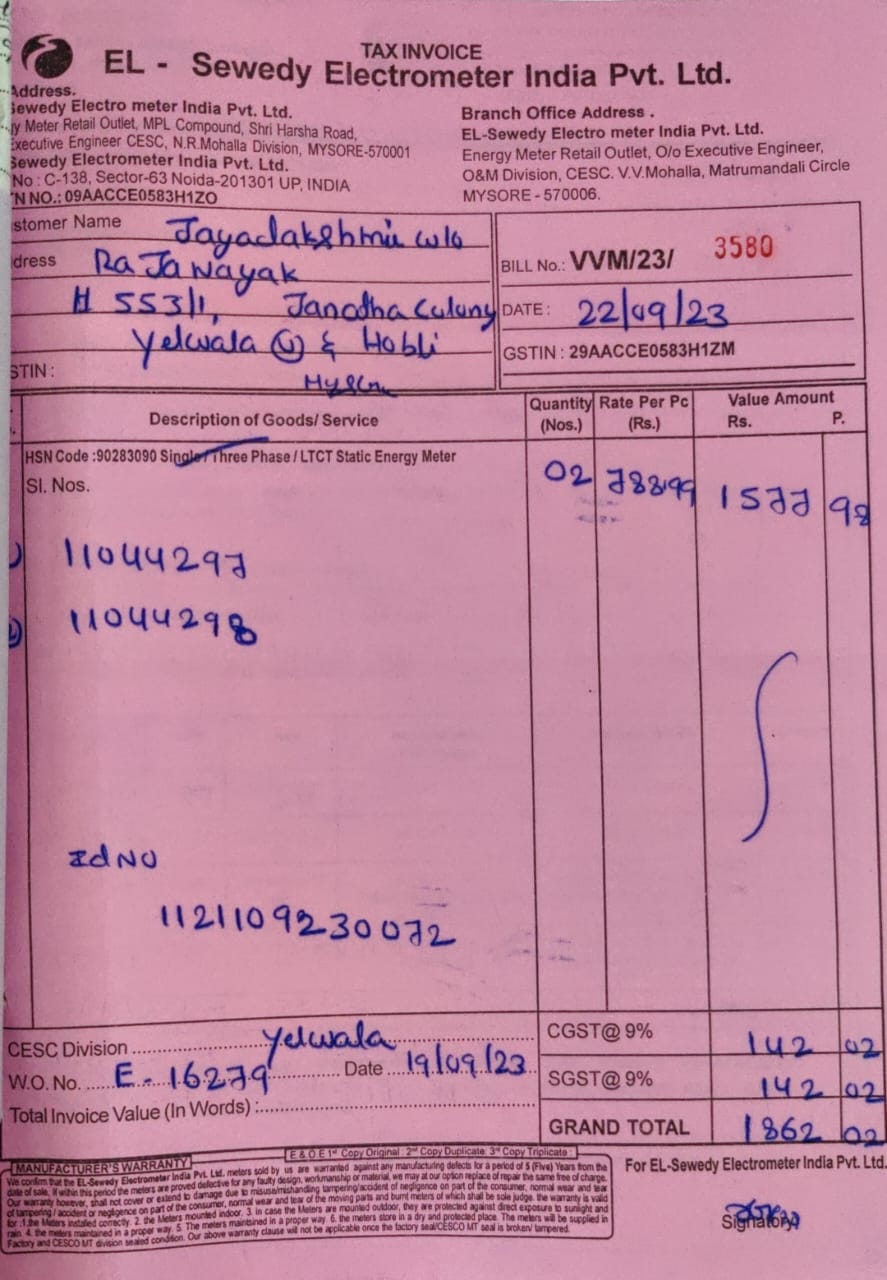 TAX INVOICE
EL - Sewedy Electrometer India Pvt. Ltd.
Address.
Sewedy Electro meter India Pvt. Ltd.
y Meter Retail Outlet, MPL Compound, Shri Harsha Road,
Executive Engineer CESC, N.R.Mohalla Division, MYSORE-570001
Sewedy Electrometer India Pvt. Ltd.
No : C-138, Sector-63 Noida-201301 UP, INDIA
N NO.: 09AACCE0583H1ZO
Branch Office Address .
EL-Sewedy Electro meter India Pvt. Ltd.
Energy Meter Retail Outlet, O/o Executive Engineer,
O&M Division, CESC. V.V.Mohalla, Matrumandali Circle
MYSORE - 570006.
stomer Name Jayadakshmi w/o
dress Raja Nayak
H 553/1, Janatha Colony
Yelwala (V) & Hobli
STIN :
BILL No.: VVM/23/ 3580
DATE : 22/09/23
GSTIN : 29AACCE0583H1ZM
Description of Goods/ Service
Quantity (Nos.)
Rate Per Pc (Rs.)
Value Amount
Rs. P.
HSN Code :90283090 Single / Three Phase / LTCT Static Energy Meter
Sl. Nos.
02 788.99 1577 98
11044297
11044298
Id NO
1121109230072
CESC Division Yelwala
W.O. No. E-16279 Date 19/09/23
Total Invoice Value (In Words) :
CGST@ 9% 142 02
SGST@ 9% 142 02
GRAND TOTAL 1862 02
E & O.E 1st Copy Original : 2nd Copy Duplicate: 3rd Copy Triplicate :
MANUFACTURER'S WARRANTY
We confirm that the EL-Sewedy Electrometer India Pvt. Ltd. meters sold by us are warranted against any manufacturing defects for a period of 5 (Five) Years from the
date of sale. If within this period the meters are proved defective for any faulty design, workmanship or material, we may at our option replace of repair the same free of charge.
Our warranty however, shall not cover or extend to damage due to misuse/mishandling tampering/accident of negligence on part of the consumer, normal wear and tear
of tampering / accident or negligence on part of the consumer, normal wear and tear of the moving parts and burnt meters of which shall be sole judge. the warranty is valid
for :1.the Meters installed correctly. 2. the Meters mounted indoor. 3. in case the Meters are mounted outdoor, they are protected against direct exposure to sunlight and
rain. 4. the meters maintained in a proper way. 5. The meters maintained in a proper way. 6. the meters store in a dry and protected place. The meters will be supplied in
Factory and CESCO MT division sealed condition. Our above warranty clause will not be applicable once the factory seal/CESCO MT seal is broken/ tampered.
For EL-Sewedy Electrometer India Pvt. Ltd.
Signatory